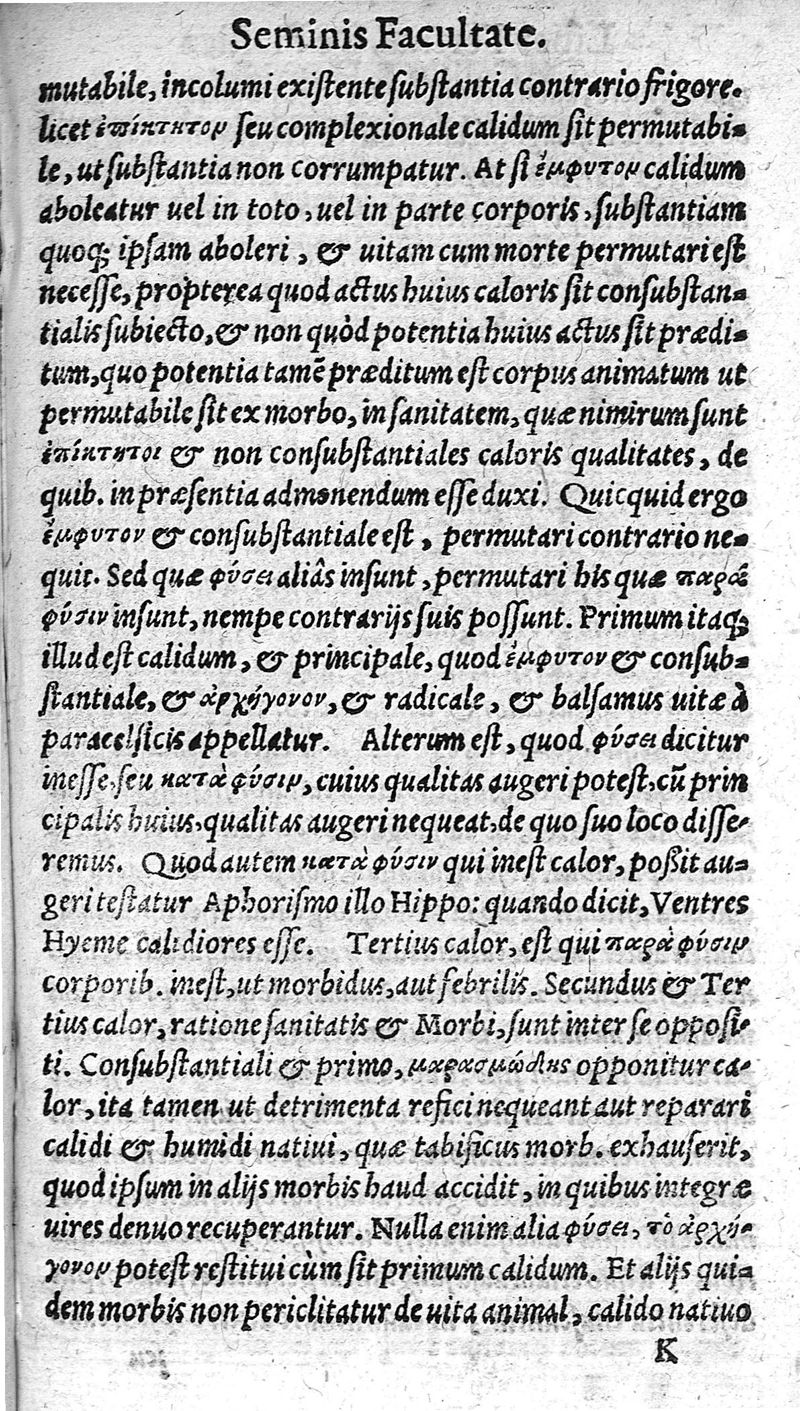 Seminis Facultate.
mutabile, incolumi existente substantia contrario frigore.
licet ἐπίκτητον seu complexionale calidum sit permutabi-
le, ut substantia non corrumpatur. At si ἔμφυτον calidum
aboleatur uel in toto, uel in parte corporis, substantiam
quoq; ipsam aboleri, & uitam cum morte permutari est
necesse, propterea quod actus huius caloris sit consubstan-
tialis subiecto, & non quòd potentia huius actus sit prædi-
tum, quo potentia tamē præditum est corpus animatum ut
permutabile sit ex morbo, in sanitatem, quæ nimirum sunt
ἐπίκτητοι & non consubstantiales caloris qualitates, de
quib. in præsentia admonendum esse duxi. Quicquid ergo
ἔμφυτον & consubstantiale est, permutari contrario ne-
quit. Sed quæ φύσει aliâs insunt, permutari his quæ παρὰ
φύσιν insunt, nempe contrarijs suis possunt. Primum itaq;
illud est calidum, & principale, quod ἔμφυτον & consub-
stantiale, & ἀρχήγονον, & radicale, & balsamus uitæ à
paracelsicis appellatur. Alterum est, quod φύσει dicitur
inesse, seu κατὰ φύσιν, cuius qualitas augeri potest, cū prin
cipalis huius, qualitas augeri nequeat, de quo suo loco disse-
remus. Quod autem κατὰ φύσιν qui inest calor, possit au-
geri testatur Aphorismo illo Hippo: quando dicit, Ventres
Hyeme calidiores esse. Tertius calor, est qui παρὰ φύσιν
corporib. inest, ut morbidus, aut febrilis. Secundus & Ter
tius calor, ratione sanitatis & Morbi, sunt inter se opposi-
ti. Consubstantiali & primo, μαρασμώδης opponitur ca-
lor, ita tamen ut detrimenta refici nequeant aut reparari
calidi & humidi natiui, quæ tabificus morb. exhauserit,
quod ipsum in alijs morbis haud accidit, in quibus integræ
uires denuo recuperantur. Nulla enim alia φύσει, τὸ ἀρχή-
γονον potest restitui cùm sit primum calidum. Et alijs qui-
dem morbis non periclitatur de uita animal, calido natiuo
K